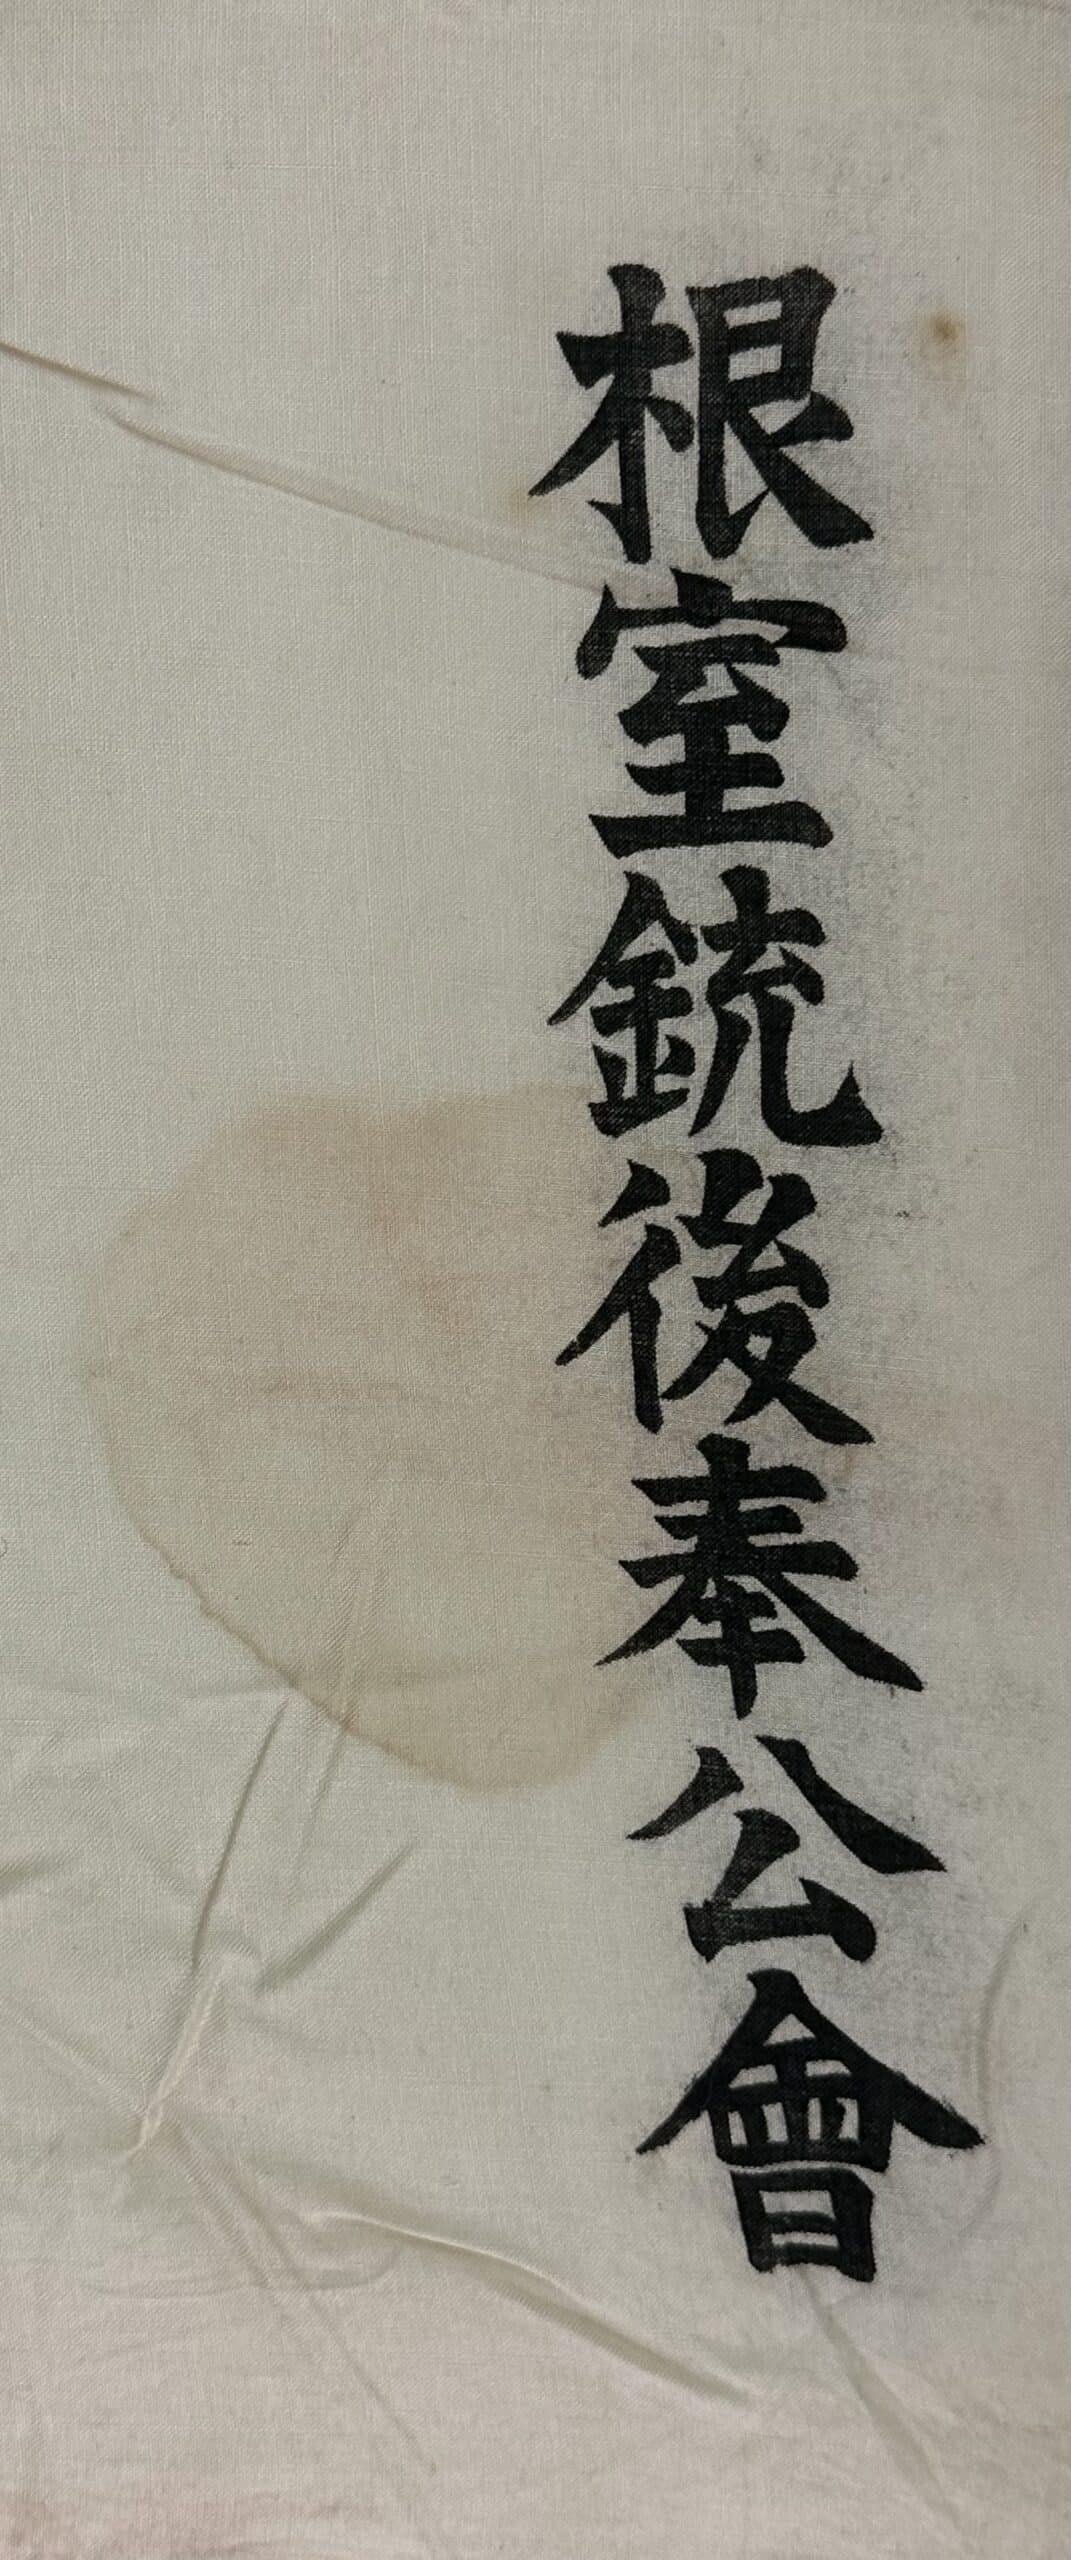 根室銃後奉公會